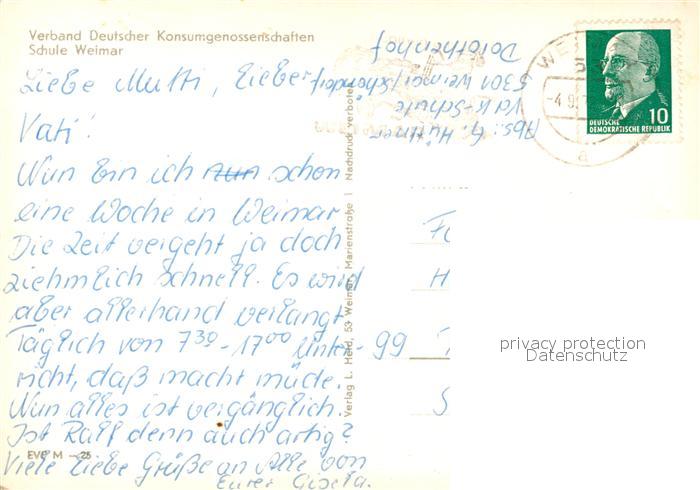 Verband Deutscher Konsumgenossenschaften
Schule Weimar
Liebe Mutti, lieber
Vati!
Nun bin ich nun schon
eine Woche in Weimar.
Die Zeit vergeht ja doch
ziehmlich schnell. Es wird
aber allerhand verlangt
Täglich von 7³⁰-17⁰⁰ Unter-
richt, daß macht müde.
Nun alles ist vergänglich.
Ist Ralf denn auch artig?
Viele liebe Grüße an Alle von
Eurer Gisela.
EVP M -25
Abs.: G. Hüttner
VdK-Schule
5301 Weimar/Schöndorf
Dorothenhof
Verlag L. Held, 53 Weimar, Marienstraße 1 Nachdruck verboten
WE
-4.9
a
DEUTSCHE
DEMOKRATISCHE REPUBLIK
10
H
99
S
privacy protection
Datenschutz